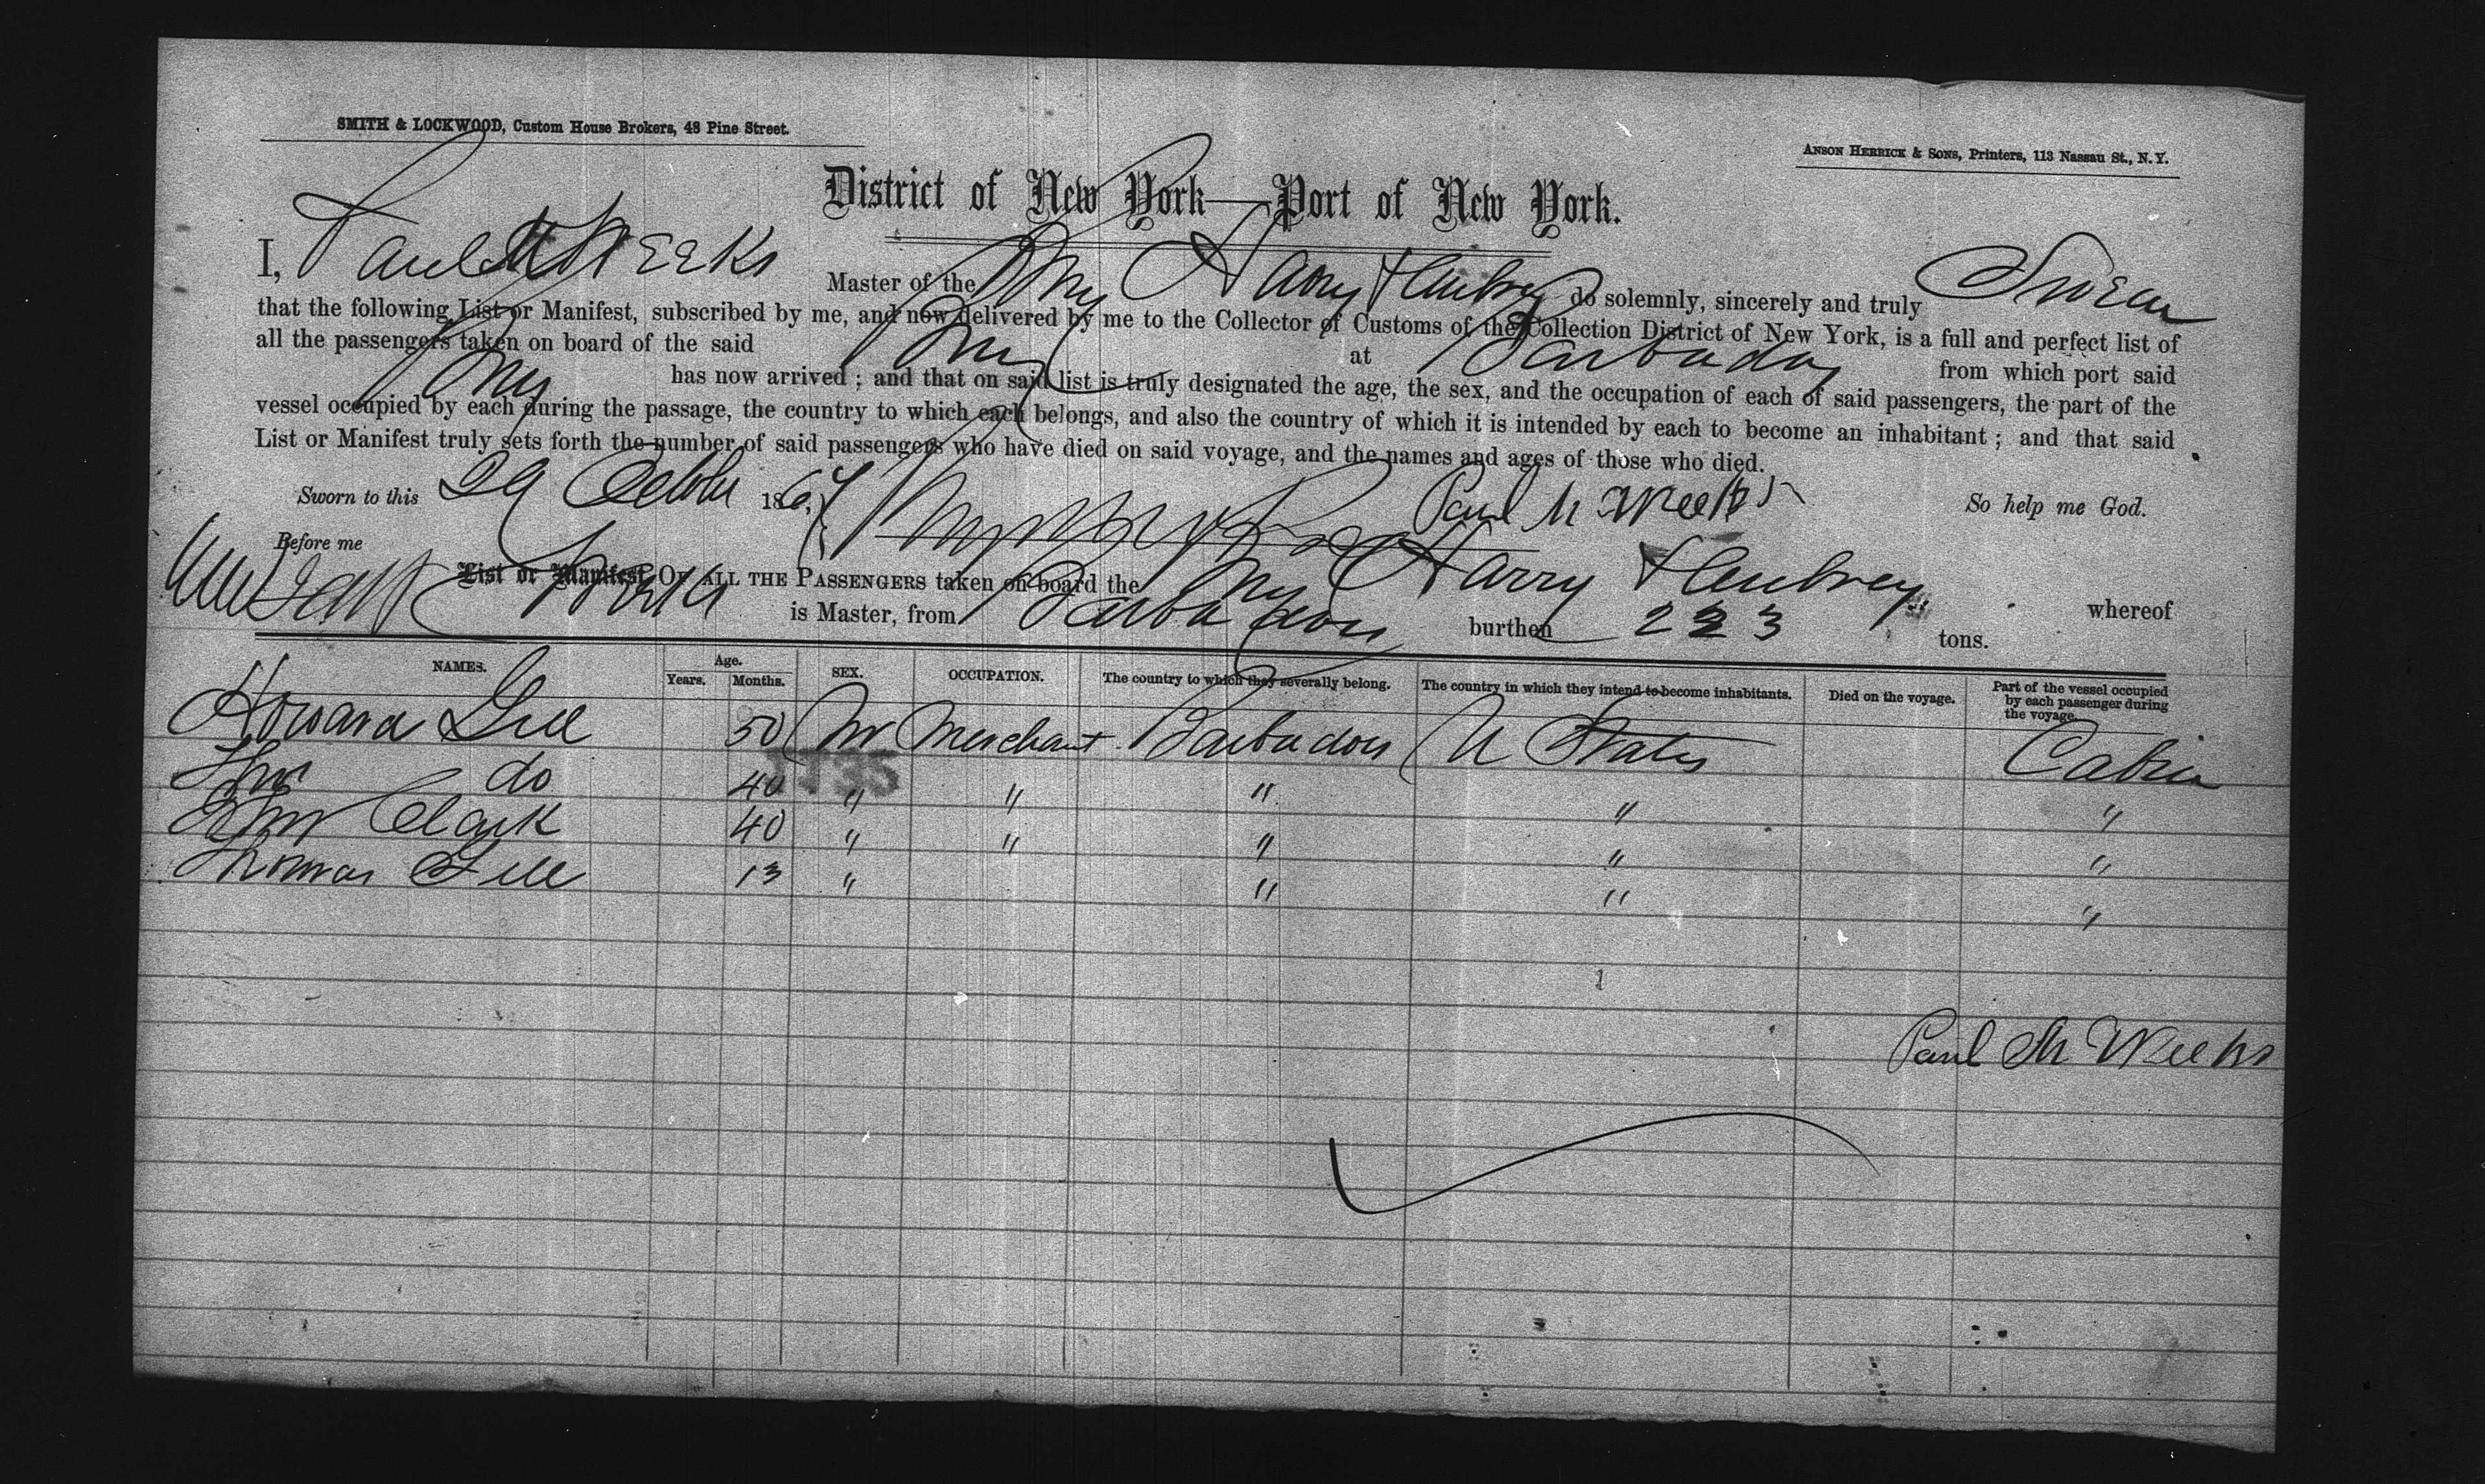 SMITH & LOCKWOOD, Custom House Brokers, 48 Pine Street.
ANSON HERRICK & SONS, Printers, 113 Nassau St., N. Y.
District of New York—Port of New York.
I, Paul M Weeks Master of the Brig Harry do solemnly, sincerely and truly Swear
that the following List or Manifest, subscribed by me, and now delivered by me to the Collector of Customs of the Collection District of New York, is a full and perfect list of
all the passengers taken on board of the said Brig at Barbados from which port said
Brig has now arrived; and that on said list is truly designated the age, the sex, and the occupation of each of said passengers, the part of the
vessel occupied by each during the passage, the country to which each belongs, and also the country of which it is intended by each to become an inhabitant; and that said
List or Manifest truly sets forth the number of said passengers who have died on said voyage, and the names and ages of those who died.
Sworn to this 29 October 186 Paul M Weeks So help me God.
Before me
List or Manifest OF ALL THE PASSENGERS taken on board the Brig Harry whereof
Weeks is Master, from Barbados burthen 223 tons.
NAMES. Age. Years. Months. SEX. OCCUPATION. The country to which they severally belong. The country in which they intend to become inhabitants. Died on the voyage. Part of the vessel occupied by each passenger during the voyage.
Howard Gill 50 M Merchant Barbados U States Cabin
do 40 " " " " "
Clark 40 " " " " "
Thomas Gill 13 " " " "
Paul M Weeks